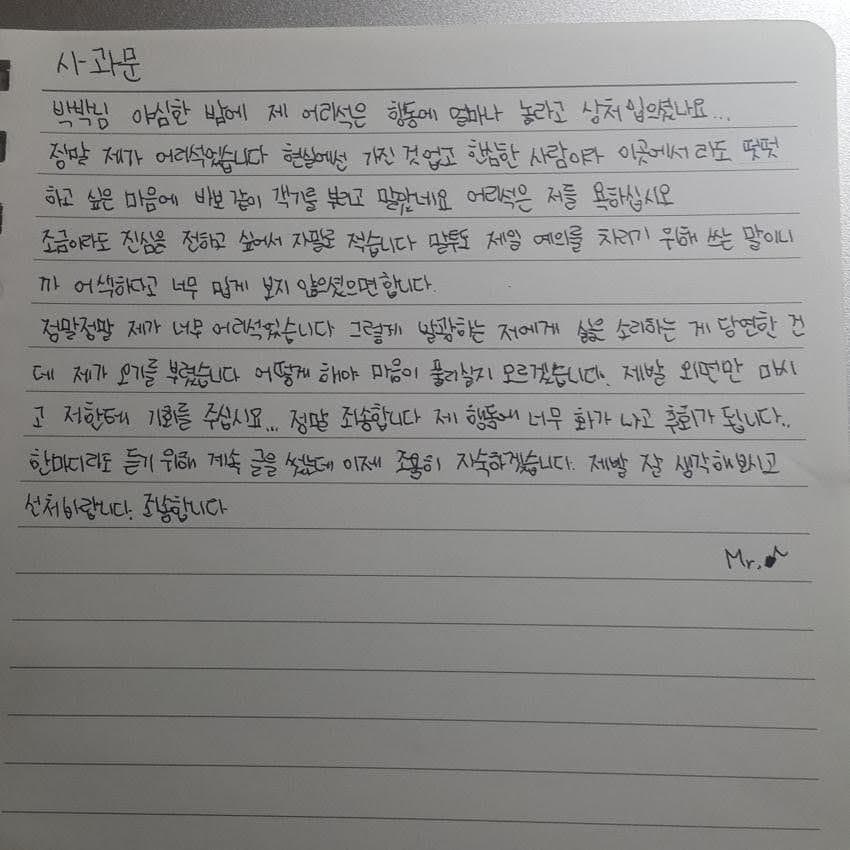 사과문
박박님 야심한 밤에 제 어리석은 행동에 얼마나 놀라고 상처입으셨나요...
정말 제가 어리석었습니다 현실에선 가진 것 없고 한심한 사람이라 이곳에서라도 떳떳
하고 싶은 마음에 바보 같이 객기를 부리고 말았네요 어리석은 저를 욕하십시오
조금이라도 진심을 전하고 싶어서 자필로 적습니다 말투도 제일 예의를 차리기 위해 쓰는 말이니
까 어색하다고 너무 밉게 보지 않으셨으면 합니다.
정말정말 제가 너무 어리석었습니다 그렇게 발광하는 저에게 싫은 소리하는 게 당연한 건
데 제가 오기를 부렸습니다 어떻게 해야 마음이 풀리실지 모르겠습니다. 제발 외면만 마시
고 저한테 기회를 주십시요... 정말 죄송합니다 제 행동에 너무 화가 나고 후회가 됩니다..
한마디라도 듣기 위해 계속 글을 썼는데 이제 조용히 자숙하겠습니다. 제발 잘 생각해보시고
선처바랍니다. 죄송합니다
Mr.♪